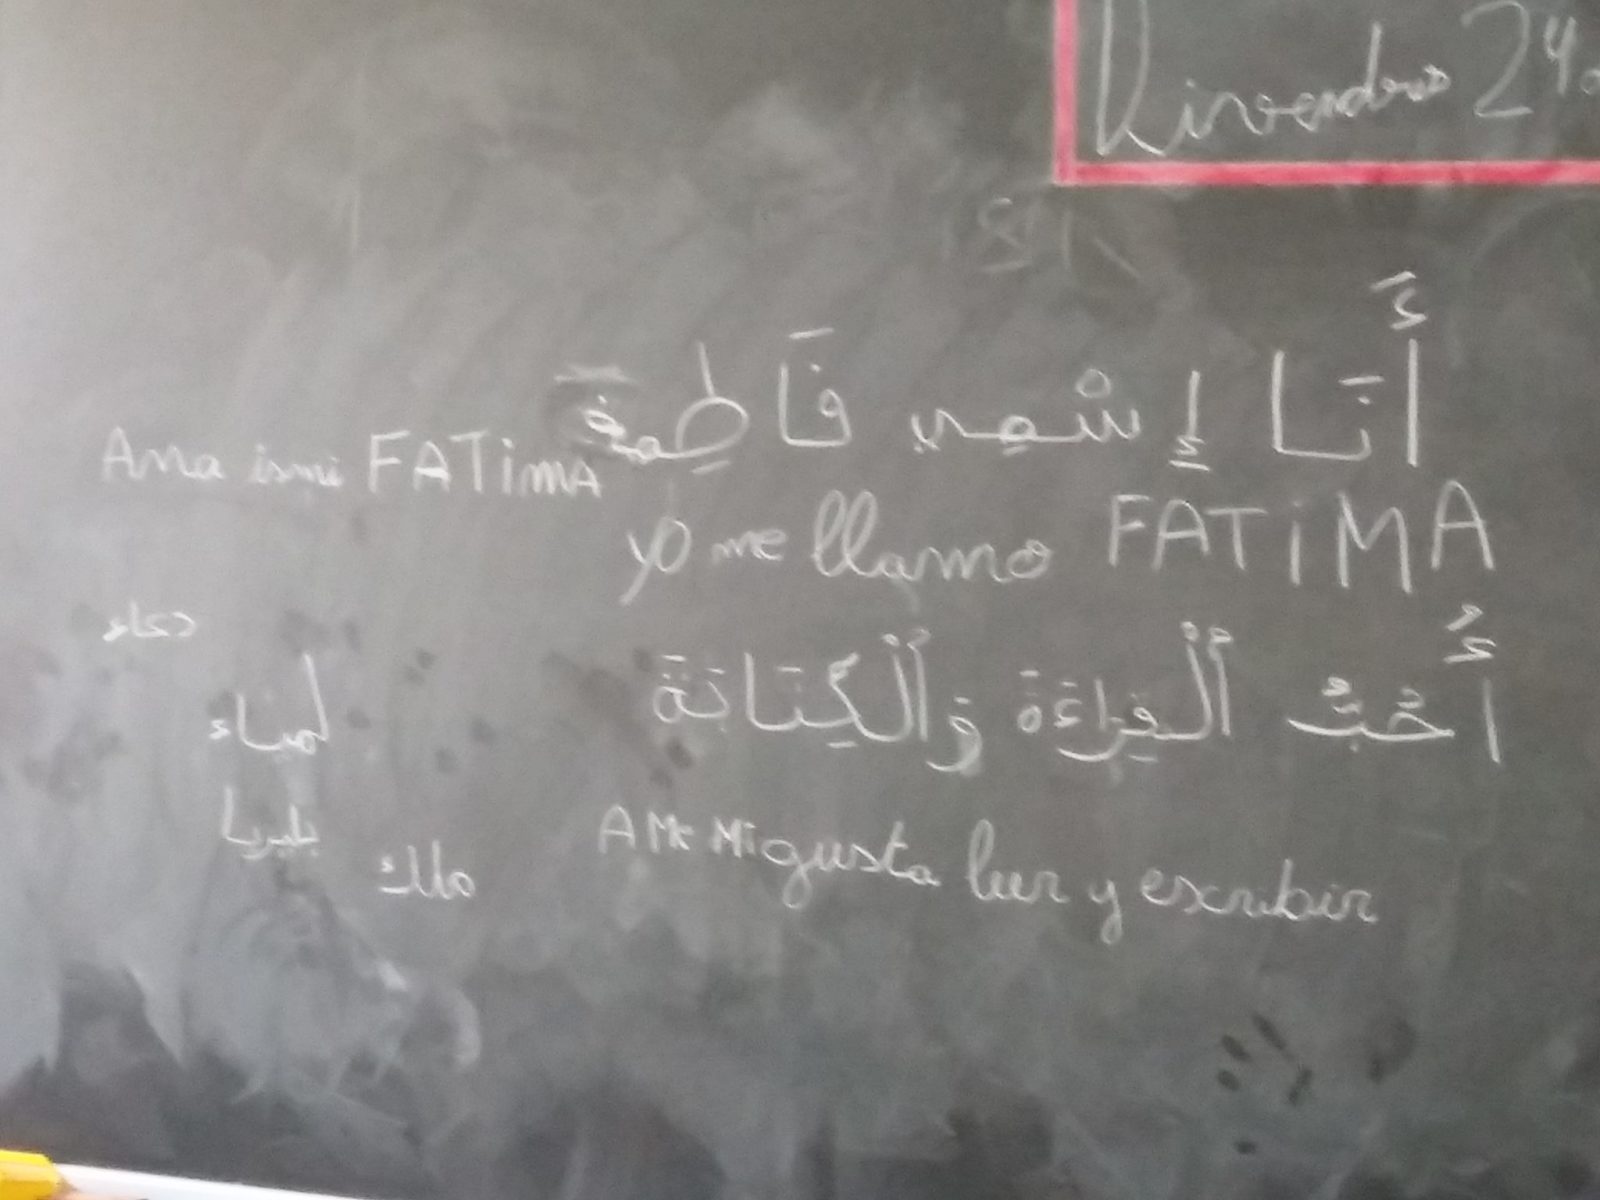 Divendres 24
أَنَا إِسْمِي فَاطِمَة
Ana ismi FATiMA
yo me llamo FATiMA
أُحِبُّ ٱلْقِرَاءَةَ وَٱلْكِتَابَةَ
دعاء
لمياء
A Mi gusta leer y escribir
ملك